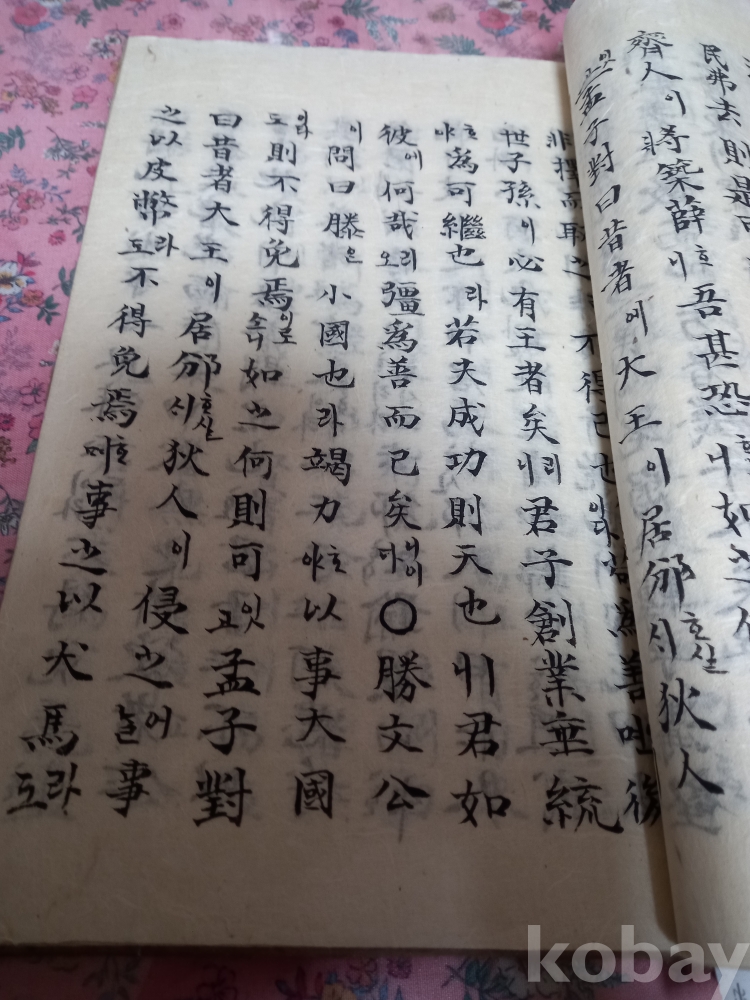 民弗去則是可
齊人이將築薛호니吾甚恐호니如之何
잇고孟子對曰昔者에大王이居邠호실시狄人
非擇而取之不得已也이다苟爲善後
世子孫이必有王者矣리니君子創業垂統
호야爲可繼也라若夫成功則天也니君如
彼에何哉리오彊爲善而已矣니이다○勝文公
이問曰滕은小國也라竭力호야以事大國
이라도則不得免焉이로소니如之何則可잇고孟子對
曰昔者大王이居邠호실시狄人이侵之어늘事
之以皮幣라도不得免焉호며事之以犬馬라도
kobay